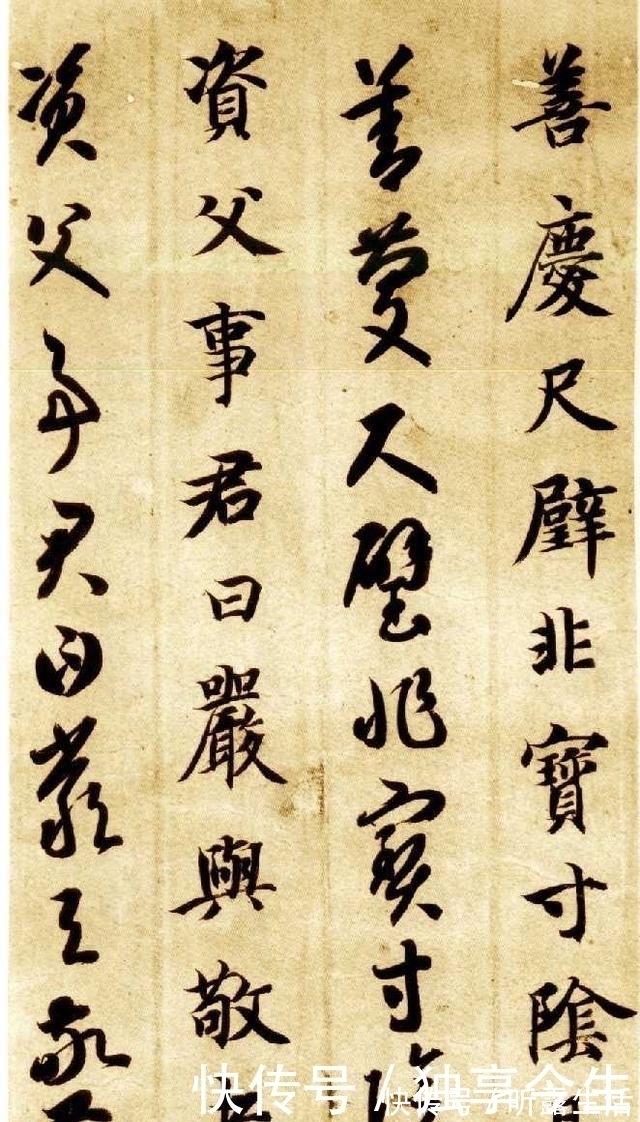 善慶尺璧非寶寸陰
善慶尺璧非寶寸陰
資父事君曰嚴與敬
資父事君曰嚴与敬
快传号 / 独享余生
快传号 / 听露生活